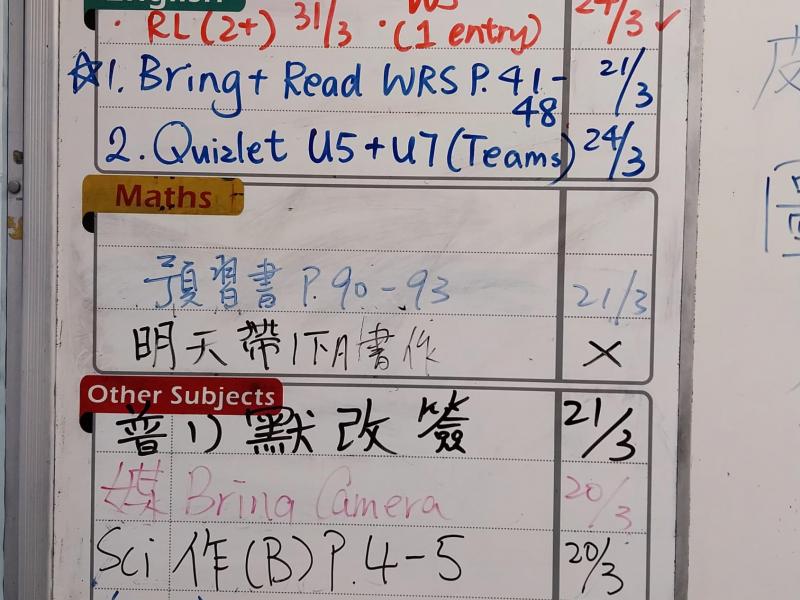 English
· RL (2+) 31/3 · WS (1 entry) 24/3 ✓
☆1. Bring + Read WRS P. 41-48 21/3
2. Quizlet U5+U7 (Teams) 24/3
Maths
預習書 P.90-93 21/3
明天帶1下A書作 ×
Other Subjects
普 1) 默改簽 21/3
媒 Bring Camera 20/3
Sci 作(B) P.4-5 20/3
圖